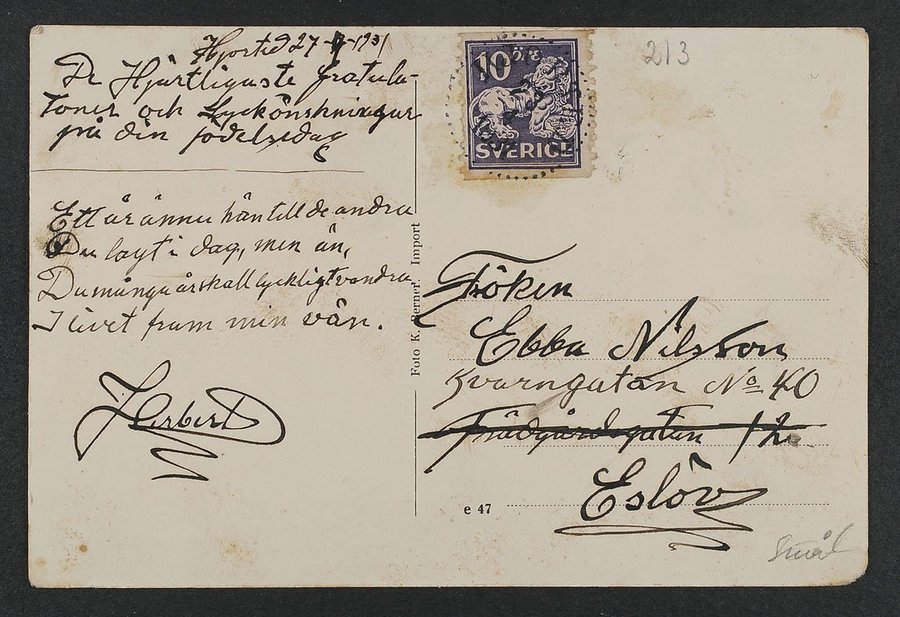 Hjorted 27-4-1931
De Hjärtligaste Gratula-
toner och Lyckönskningar
på din födelsedag
Ett år ännu hän till de andra
Du layt i dag, men än,
Du många år skall lyckligt vandra
I livet fram min vän.
Herbert
Foto K. Berner. Import
213
10 ÖRE
SVERIGE
Fröken
Ebba Nilsson
Kvarngatan No 40
Trädgårdsgatan 12
Eslöv
e 47
Smål